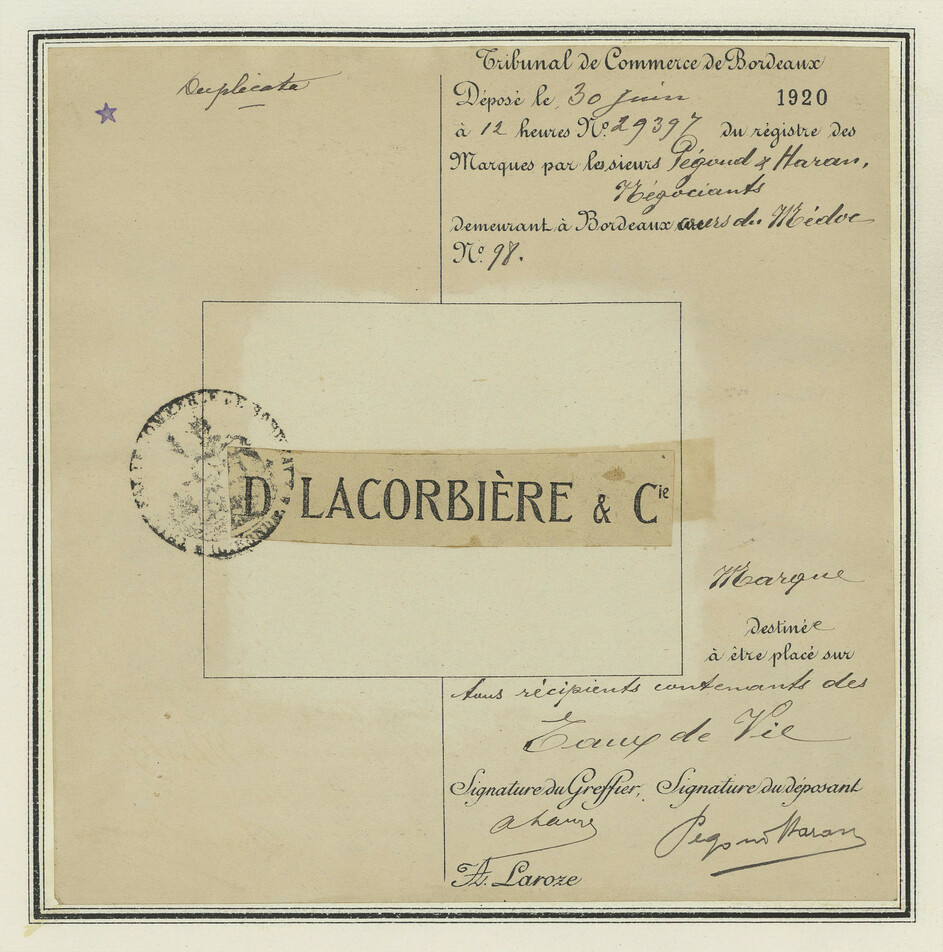 Duplicata
Tribunal de Commerce de Bordeaux
Déposé le 30 Juin 1920
à 12 heures N°. 29397 du régistre des
Marques par les sieurs Pégoud & Haran,
Négociants
demeurant à Bordeaux cours du Médoc
N°. 98.
D. LACORBIÈRE & Cie
Marque
destinée
à être placé sur
tous récipients contenants des
Eaux de Vie
Signature du Greffier, Signature du déposant
Pegoud Haran
A. Laroze